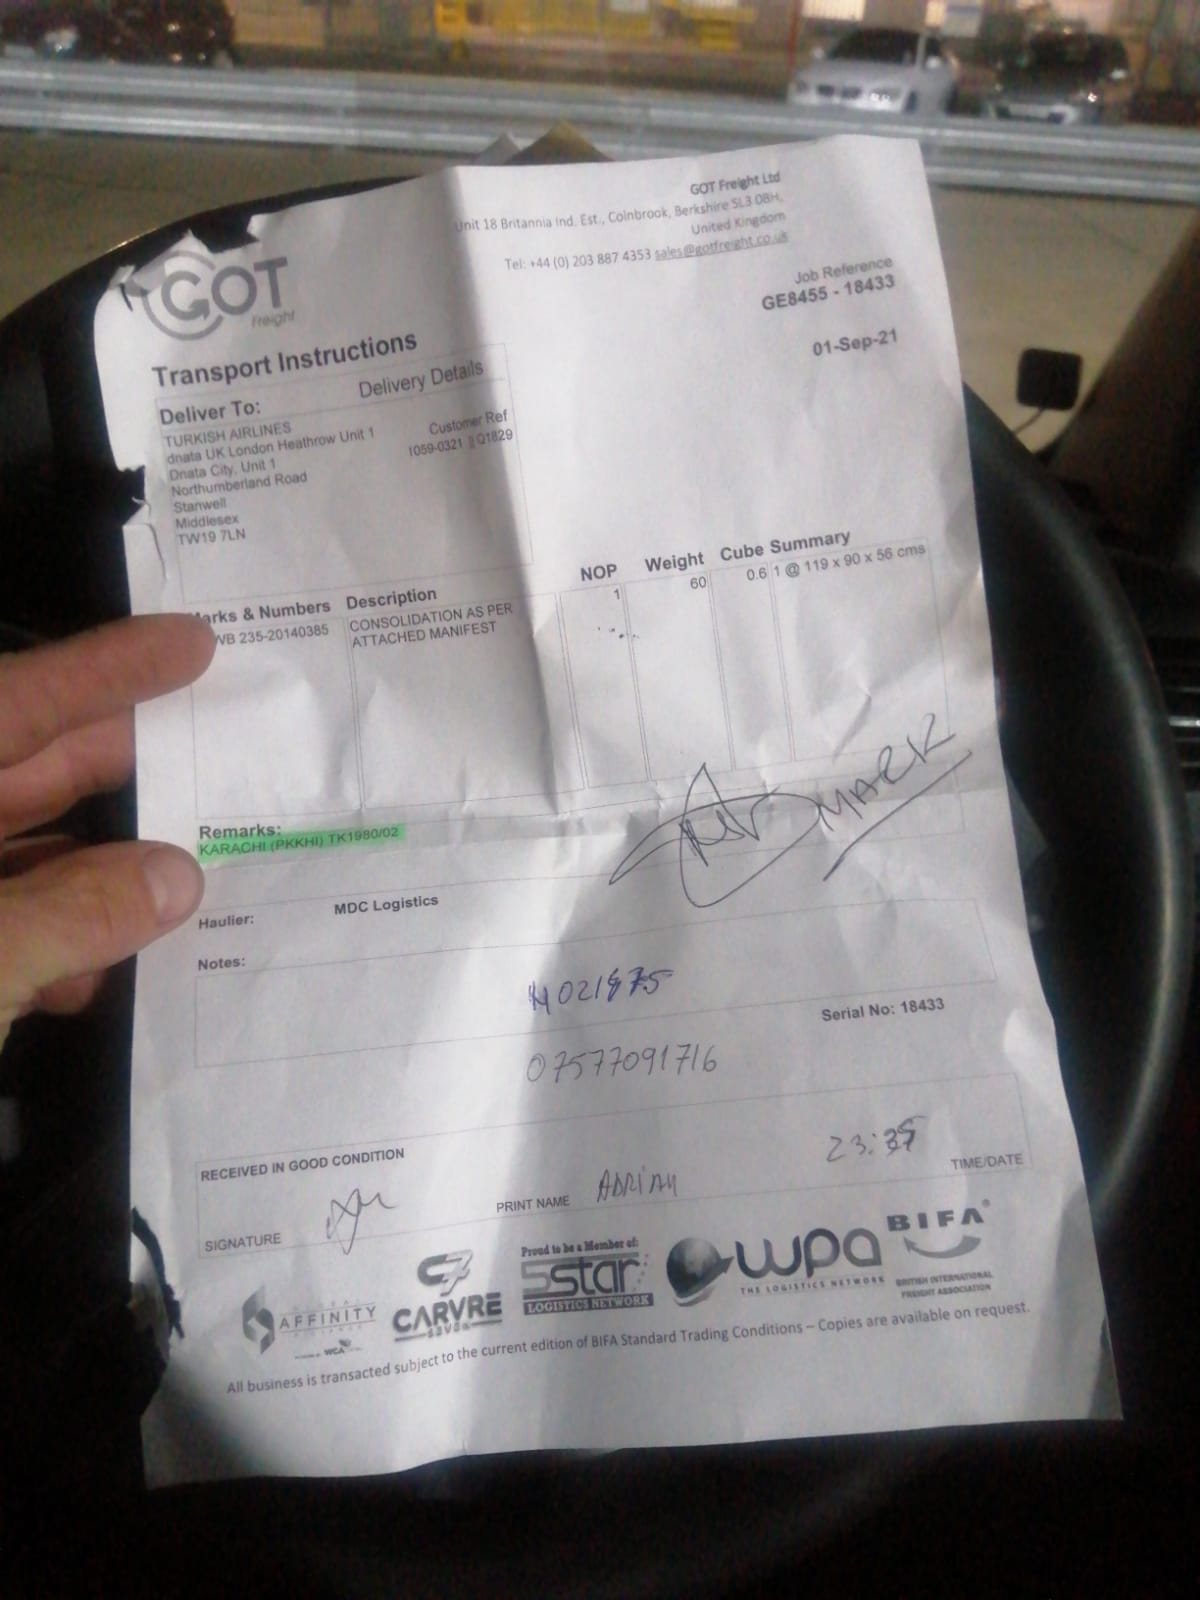 GOT Freight Ltd
Unit 18 Britannia Ind. Est., Colnbrook, Berkshire SL3 0BH,
United Kingdom
Tel: +44 (0) 203 887 4353 sales@gotfreight.co.uk
GOT
Freight
Job Reference
GE8455 - 18433
01-Sep-21
Transport Instructions
Delivery Details
Deliver To:
TURKISH AIRLINES
dnata UK London Heathrow Unit 1
Dnata City, Unit 1
Northumberland Road
Stanwell
Middlesex
TW19 7LN
Customer Ref
1059-0321 || Q1829
arks & Numbers Description NOP Weight Cube Summary
WB 235-20140385 CONSOLIDATION AS PER 1 60 0.6 1 @ 119 x 90 x 56 cms
ATTACHED MANIFEST
MARK
Remarks:
KARACHI (PKKHI) TK1980/02
Haulier: MDC Logistics
Notes:
Serial No: 18433
07577091716
RECEIVED IN GOOD CONDITION
SIGNATURE
PRINT NAME ADRIAN
23:35
TIME/DATE
AFFINITY
WCA
C7
CARVRE
SEVEN
Proud to be a Member of:
5star
LOGISTICS NETWORK
wpa
THE LOGISTICS NETWORK
BIFA
BRITISH INTERNATIONAL
FREIGHT ASSOCIATION
All business is transacted subject to the current edition of BIFA Standard Trading Conditions – Copies are available on request.